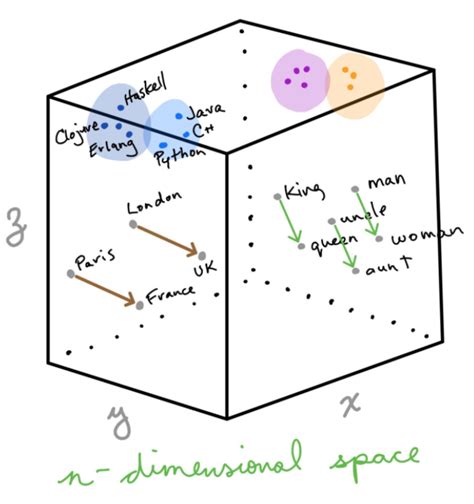 Haskell
Java
Clojure
C++
Erlang
Python
King
man
London
uncle
queen
woman
Paris
UK
aunt
France
z
y
x
n-dimensional space